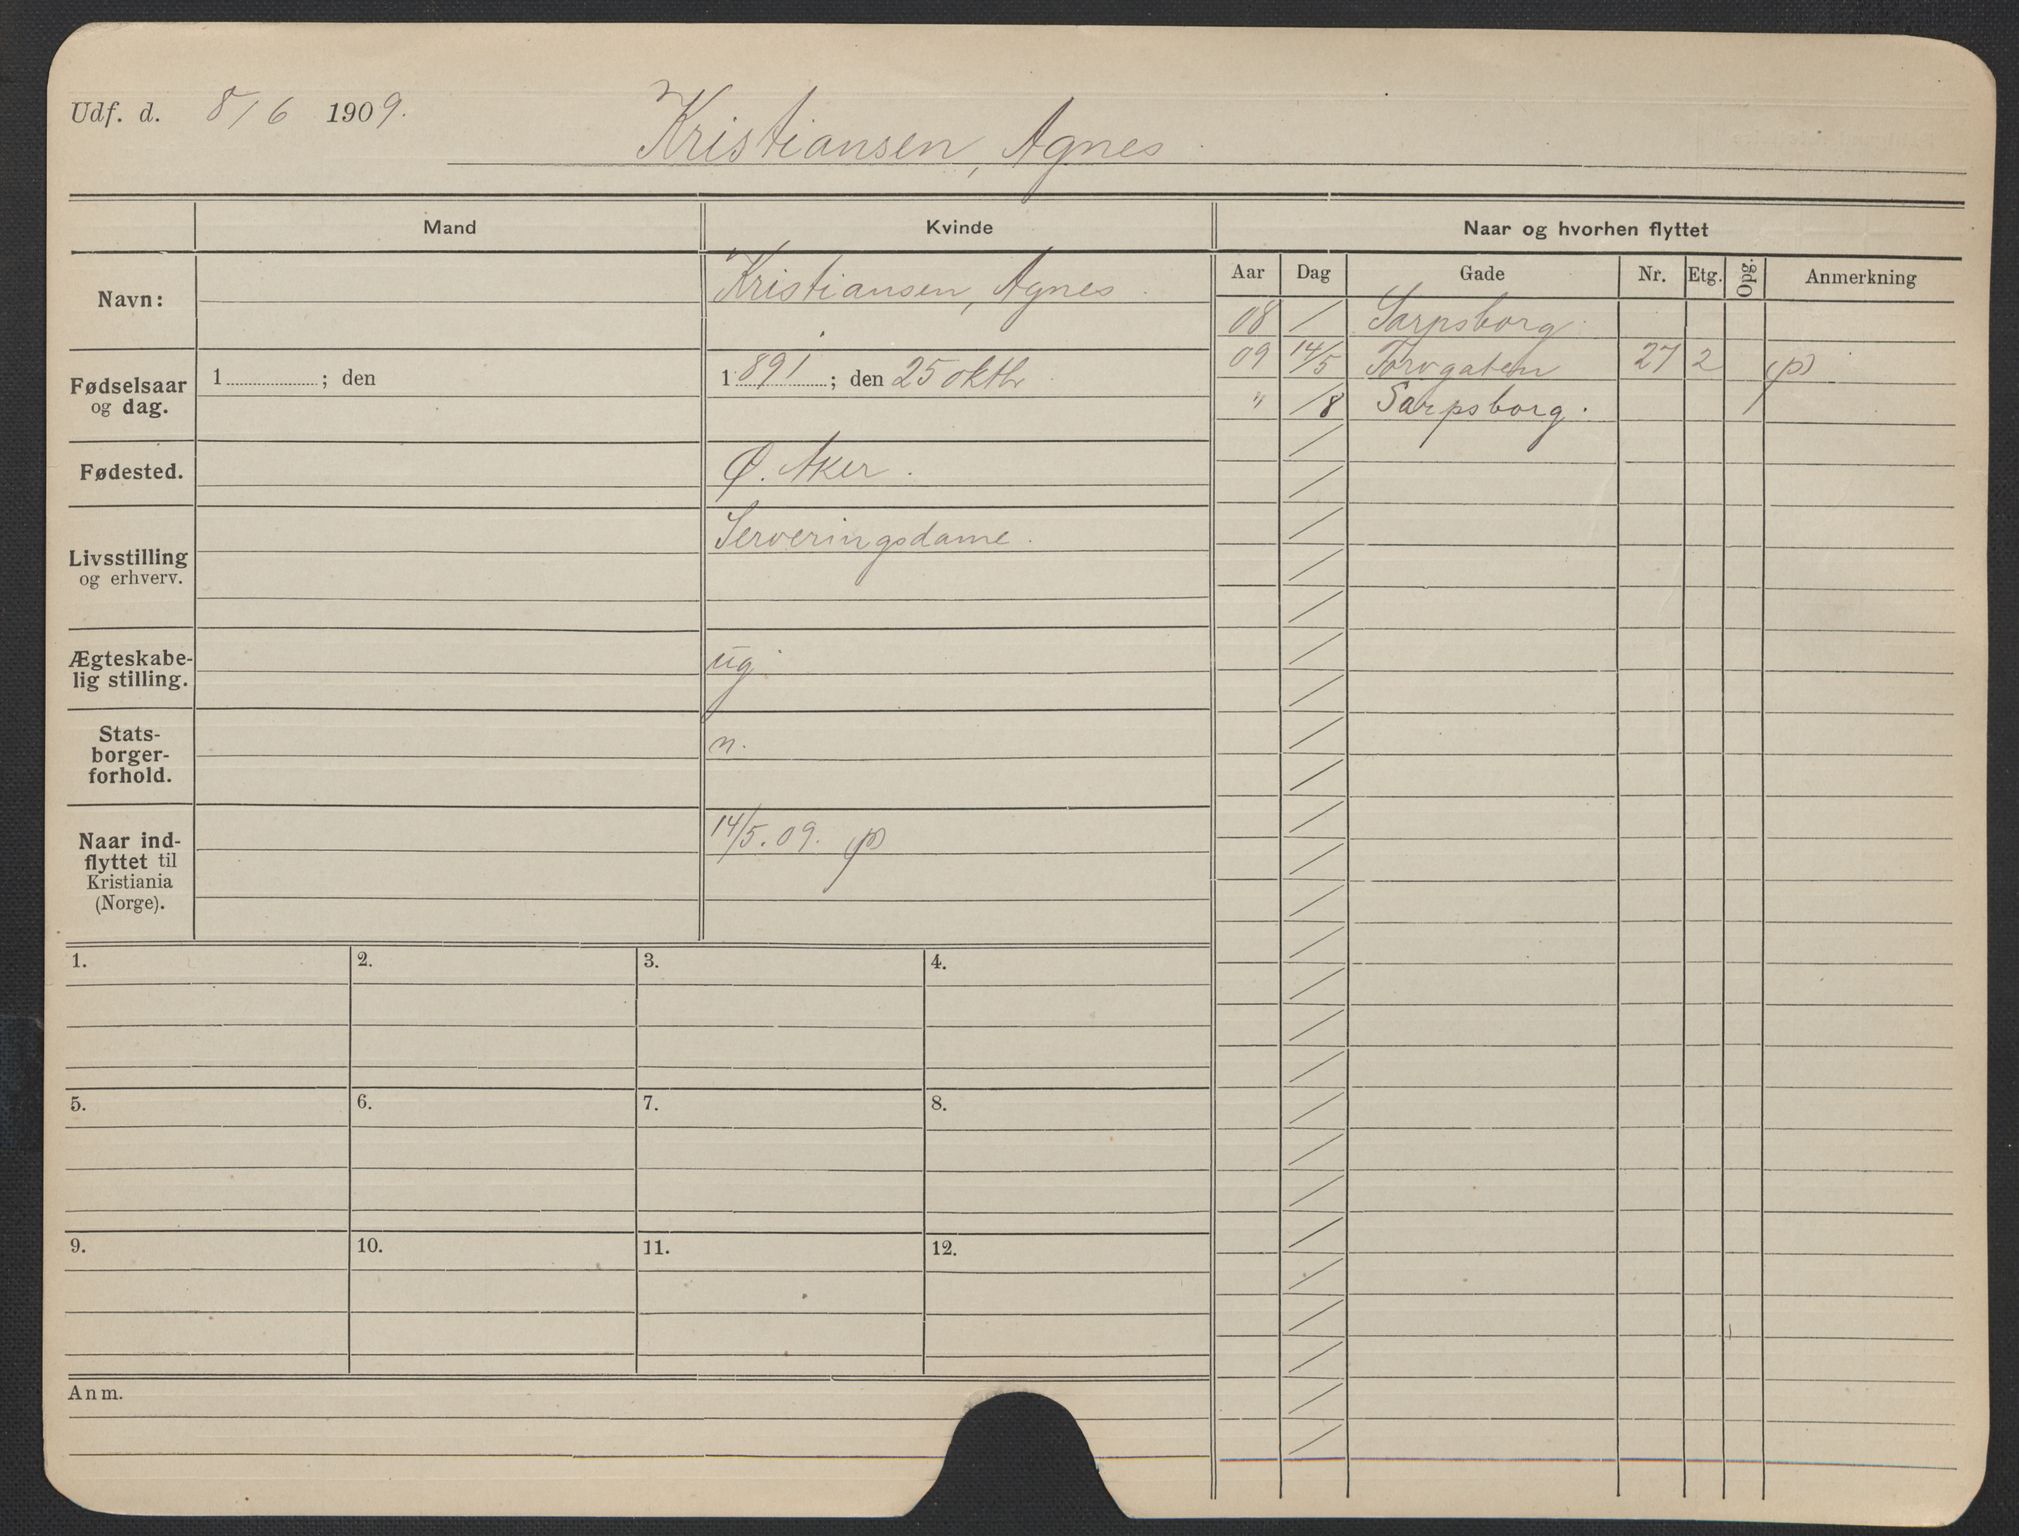 Udf. d. 8/6 1909.
Kristiansen, Agnes
Mand Kvinde Naar og hvorhen flyttet
Aar Dag Gade Nr. Etg. Opg. Anmerkning
Navn: Kristiansen, Agnes
08 / Sarpsborg
09 14/5 Torvgaten 27 2 (p)
" /8 Sarpsborg.
Fødselsaar
og dag.
1 ; den
1891 ; den 25 oktbr
Fødested.
Ø. Aker.
Livsstilling
og erhverv.
Serveringsdame.
Ægteskabe-
lig stilling.
ug.
Stats-
borger-
forhold.
n.
Naar ind-
flyttet til
Kristiania
(Norge).
14/5. 09. (p)
1. 2. 3. 4.
5. 6. 7. 8.
9. 10. 11. 12.
Anm.